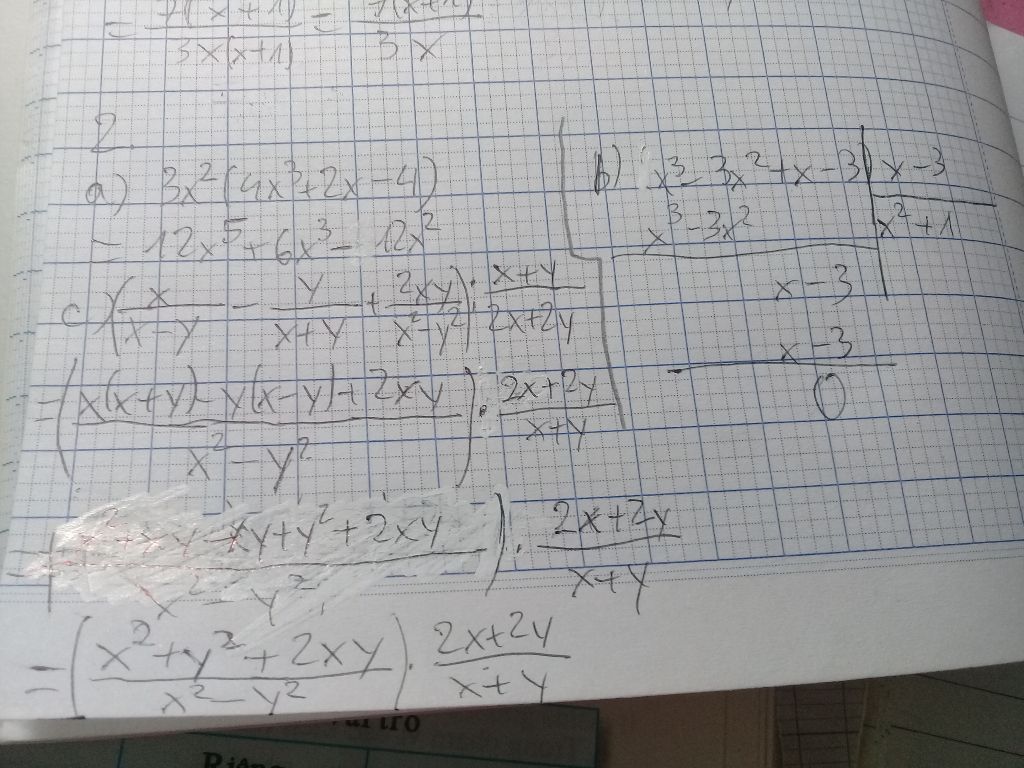 = 7(x+1)/3x(x+1) = 7(x+1)/3x
2.
a) 3x²(4x³+2x-4)
= 12x⁵+6x³-12x²
b) x³-3x²+x-3 | x-3
x³-3x² | x²+1
x-3
x-3
0
c) (x/(x-y) - y/(x+y) + 2xy/(x²-y²)) : (x+y)/(2x+2y)
= ((x(x+y)-y(x-y)+2xy)/(x²-y²)) · (2x+2y)/(x+y)
= ((x²+xy-xy+y²+2xy)/(x²-y²)) · (2x+2y)/(x+y)
= ((x²+y²+2xy)/(x²-y²)) · (2x+2y)/(x+y)